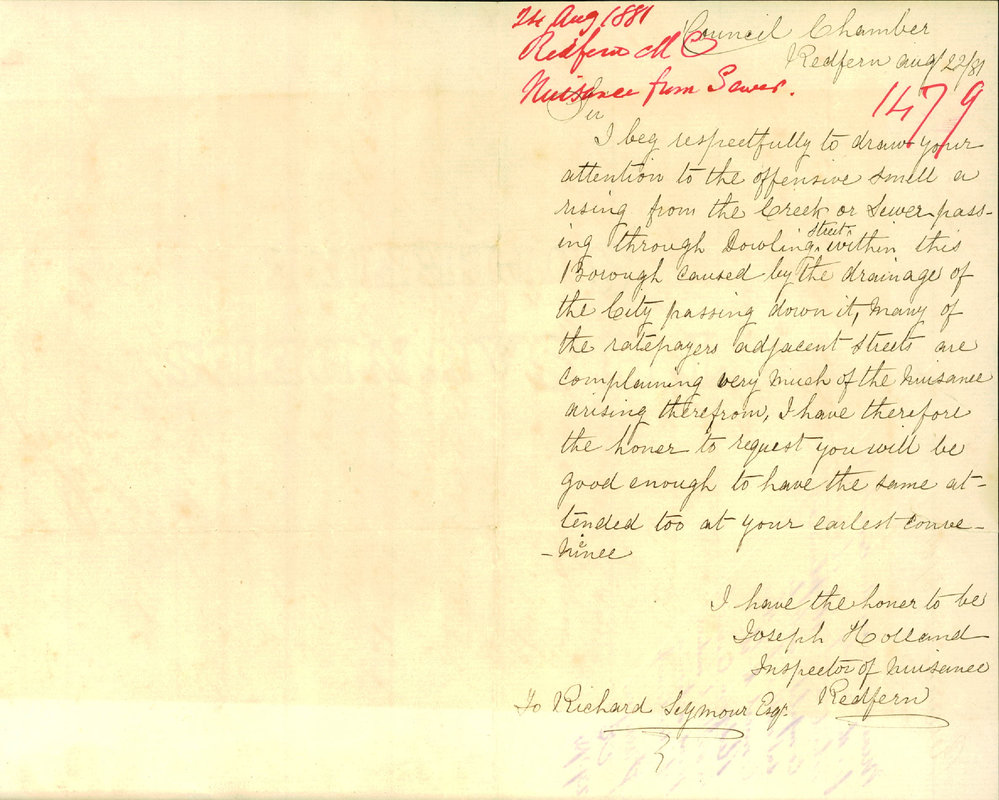 24 Aug 1881
Redfern M C
Nuisance from Sewer.
1479
Council Chamber
Redfern Aug/22/81
Sir
I beg respectfully to draw your
attention to the offensive smell a
rising from the Creek or Sewer pass-
ing through Dowling Street within this
Borough caused by the drainage of
the City passing down it, Many of
the ratepayers adjacent streets are
complaining very much of the Nuisance
arising therefrom, I have therefore
the honer to request you will be
good enough to have the same at-
tended too at your earlest conve-
-nience
I have the honer to be
Joseph Holland
Inspector of Nuisance
Redfern
To Richard Seymour Esqr.